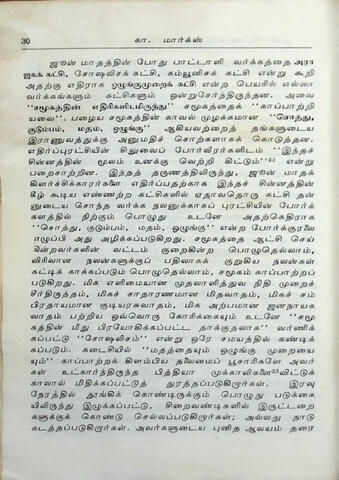 30 கா. மார்க்ஸ்
ஜூன் மாதத்தின் போது பாட்டாளி வர்க்கத்தை அரா
ஜகக் கட்சி, சோஷலிசக் கட்சி, கம்யூனிசக் கட்சி என்று கூறி
அதற்கு எதிராக ஒழுங்குமுறைக் கட்சி என்ற பெயரில் எல்லா
வர்க்கங்களும் கட்சிகளும் ஒன்றுசேர்ந்திருந்தன. அவை
"சமூகத்தின் எதிரிகளிடமிருந்து" சமூகத்தைக் "காப்பாற்றி
யவை". பழைய சமூகத்தின் காவல் முழக்கமான "சொத்து,
குடும்பம், மதம், ஒழுங்கு" ஆகியவற்றைத் தங்களுடைய
இராணுவத்துக்கு அனுமதிச் சொற்களாகக் கொடுத்தன.
எதிர்ப்புரட்சியின் சிலுவைப் போர்வீரர்களிடம் "இந்தச்
சின்னத்தின் மூலம் உனக்கு வெற்றி கிட்டும்"²² என்று
பறைசாற்றின. இந்தத் தருணத்திலிருந்து, ஜூன் மாதக்
கிளர்ச்சிக்காரர்களை எதிர்ப்பதற்காக இந்தச் சின்னத்தின்
கீழ் கூடிய எண்ணற்ற கட்சிகளில் ஏதாவதொரு கட்சி தன்
னுடைய சொந்த வர்க்க நலனுக்காகப் புரட்சியின் போர்க்
களத்தில் நிற்கும் பொழுது உடனே அதற்கெதிராக
"சொத்து, குடும்பம், மதம், ஒழுங்கு" என்ற போர்க்குரலை
எழுப்பி அது அழிக்கப்படுகிறது. சமூகத்தை ஆட்சி செய்
கின்றவர்களின் வட்டம் குறைகின்ற பொழுதெல்லாம்,
விரிவான நலன்களுக்குப் பதிலாகக் குறுகிய நலன்கள்
கட்டிக் காக்கப்படும் பொழுதெல்லாம், சமூகம் காப்பாற்றப்
படுகிறது. மிக எளிமையான முதலாளித்துவ நிதி முறைச்
சீர்திருத்தம், மிகச் சாதாரணமான மிதவாதம், மிகச் சம்
பிரதாயமான குடியரசுவாதம், மிக அற்பமான ஜனநாயக
வாதம் பற்றிய ஒவ்வொரு கோரிக்கையும் உடனே "சமூ
கத்தின் மீது பிரயோகிக்கப்பட்ட தாக்குதலாக" வர்ணிக்
கப்பட்டு "சோஷலிசம்" என்று ஒரே சமயத்தில் கண்டிக்
கப்படும். கடைசியில் "மதத்தையும் ஒழுங்கு முறையை
யும்" காப்பாற்றக் கிளம்பிய தலைமைப் பூசாரிகளே அவர்
கள் உட்கார்ந்திருந்த பித்தியா முக்காலிகளை²³விட்டுக்
காலால் மிதிக்கப்பட்டுத் துரத்தப்படுகிறார்கள். இரவு
நேரத்தில் தூங்கிக் கொண்டிருக்கும் பொழுது படுக்கை
யிலிருந்து இழுக்கப்பட்டு, சிறைவண்டிகளில் இருட்டறை
களுக்கு கொண்டு செல்லப்படுகிறார்கள்; அல்லது நாடு
கடத்தப்படுகிறார்கள். அவர்களுடைய புனித ஆலயம் தரை